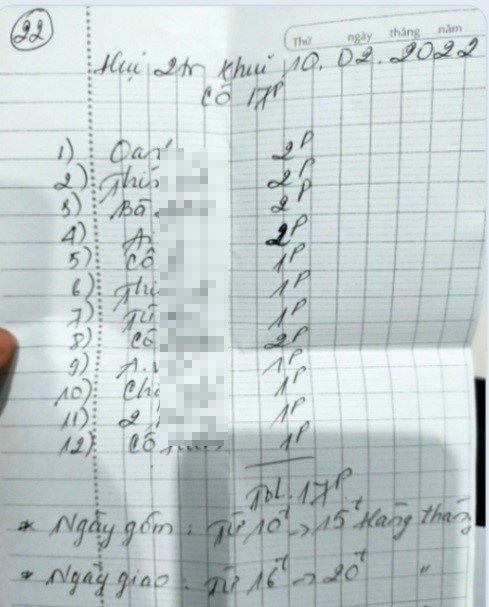 22
Thứ ngày tháng năm
Hụi 2tr Khui 10.02.2022
Có 17P
1) Oan 2P
2) Thi 2P
3) Bà 2P
4) A 2P
5) Cô 1P
6) Th 1P
7) Tư 1P
8) Cô 2P
9) A. 1P
10) Ch 1P
11) 2 1P
12) Cô 1P
17P
* Ngày gom: Từ 10t -> 15t Hàng tháng
* Ngày giao: Từ 16t -> 20t "